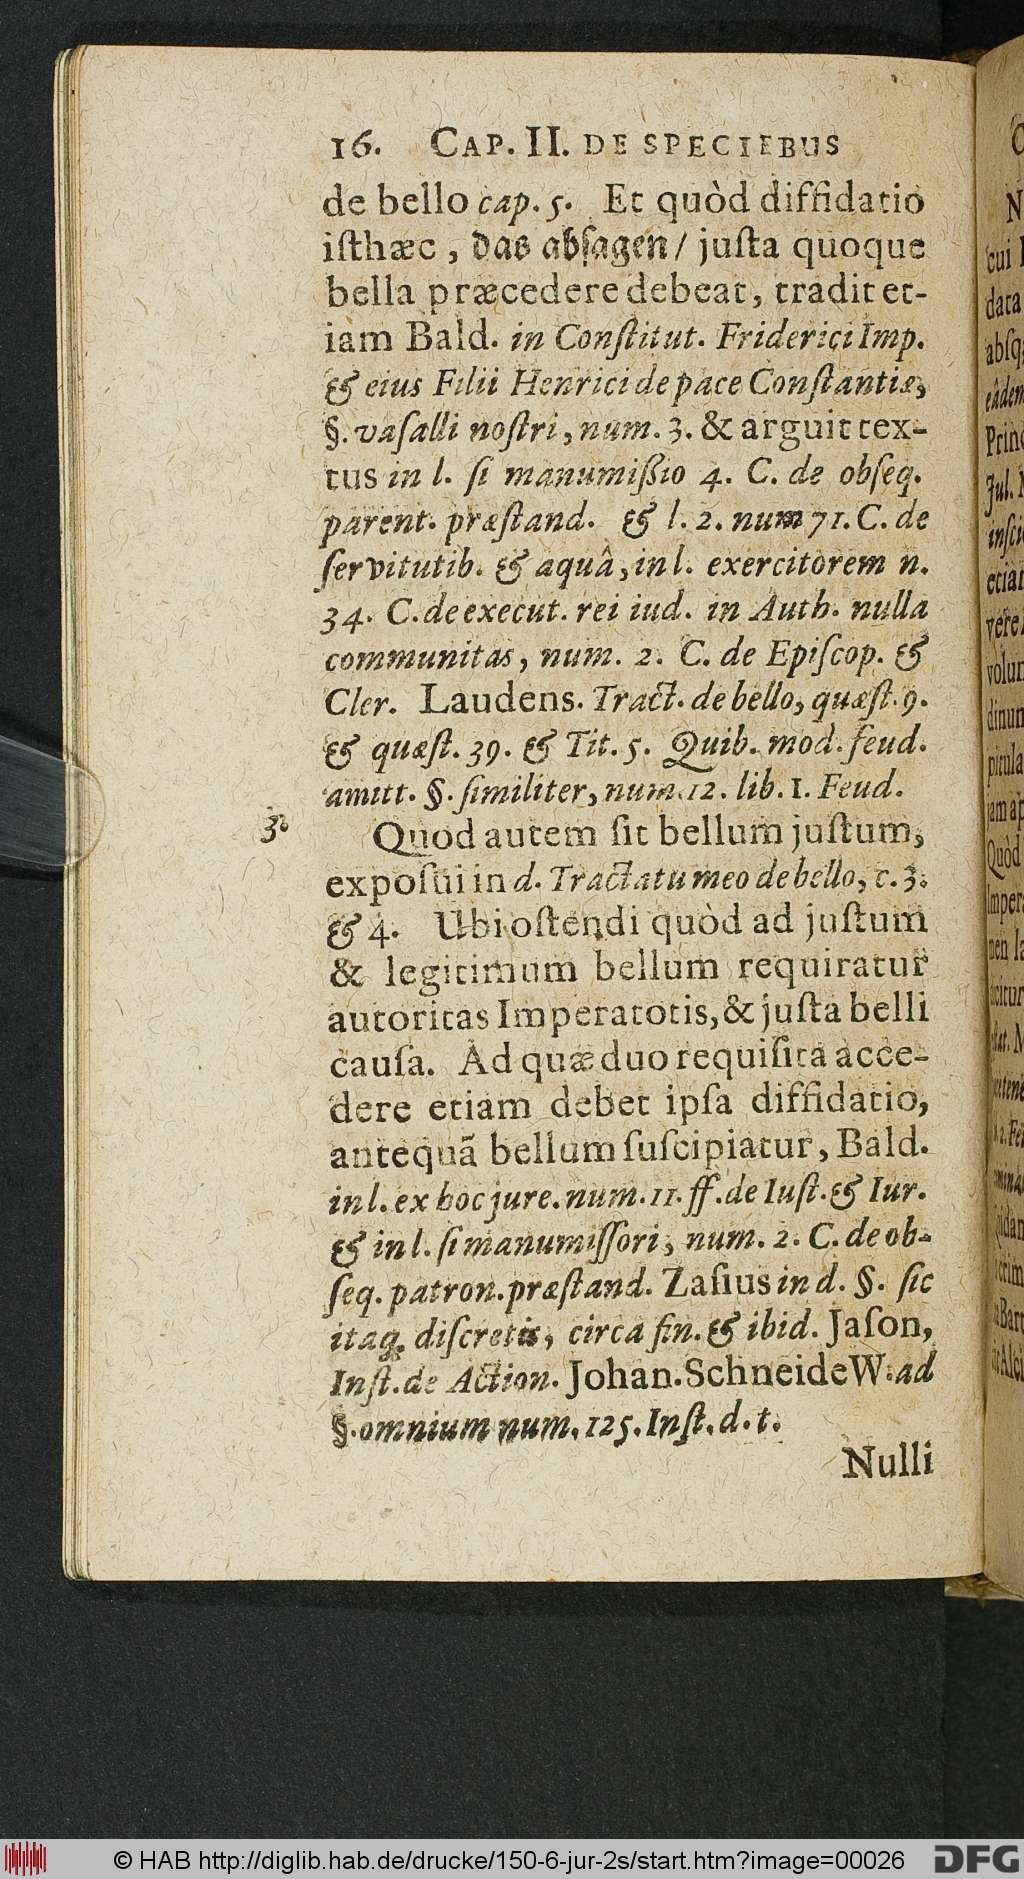 16. CAP. II. DE SPECIEBUS
de bello cap. 5. Et quòd diffidatio
iſthæc, das abſagen/ juſta quoque
bella præcedere debeat, tradit et-
iam Bald. in Conſtitut. Friderici Imp.
& eius Filii Henrici de pace Conſtantiæ,
§. vaſalli noſtri, num. 3. & arguit tex-
tus in l. ſi manumiſsio 4. C. de obſeq.
parent. præſtand. & l. 2. num 71. C. de
ſervitutib. & aquâ, in l. exercitorem n.
34. C. de execut. rei iud. in Auth. nulla
communitas, num. 2. C. de Epiſcop. &
Cler. Laudens. Tract. de bello, quæſt. 9.
& quæſt. 39. & Tit. 5. Quib. mod. feud.
amitt. §. ſimiliter, num. 12. lib. 1. Feud.
3.
Quod autem ſit bellum juſtum,
expoſui in d. Tractatu meo de bello, c. 3.
& 4. Ubi oſtendi quòd ad juſtum
& legitimum bellum requiratur
autoritas Imperatotis, & juſta belli
cauſa. Ad quæ duo requiſita acce-
dere etiam debet ipſa diffidatio,
antequã bellum ſuſcipiatur, Bald.
in l. ex hoc jure. num. 11. ff. de Iuſt. & Iur.
& in l. ſi manumiſſori, num. 2. C. de ob-
ſeq. patron. præſtand. Zaſius in d. §. ſic
itaq; diſcretis, circa fin. & ibid. Jaſon,
Inſt. de Action. Johan. SchneideW. ad
§. omnium num. 125. Inſt. d. t.
Nulli
© HAB http://diglib.hab.de/drucke/150-6-jur-2s/start.htm?image=00026
DFG